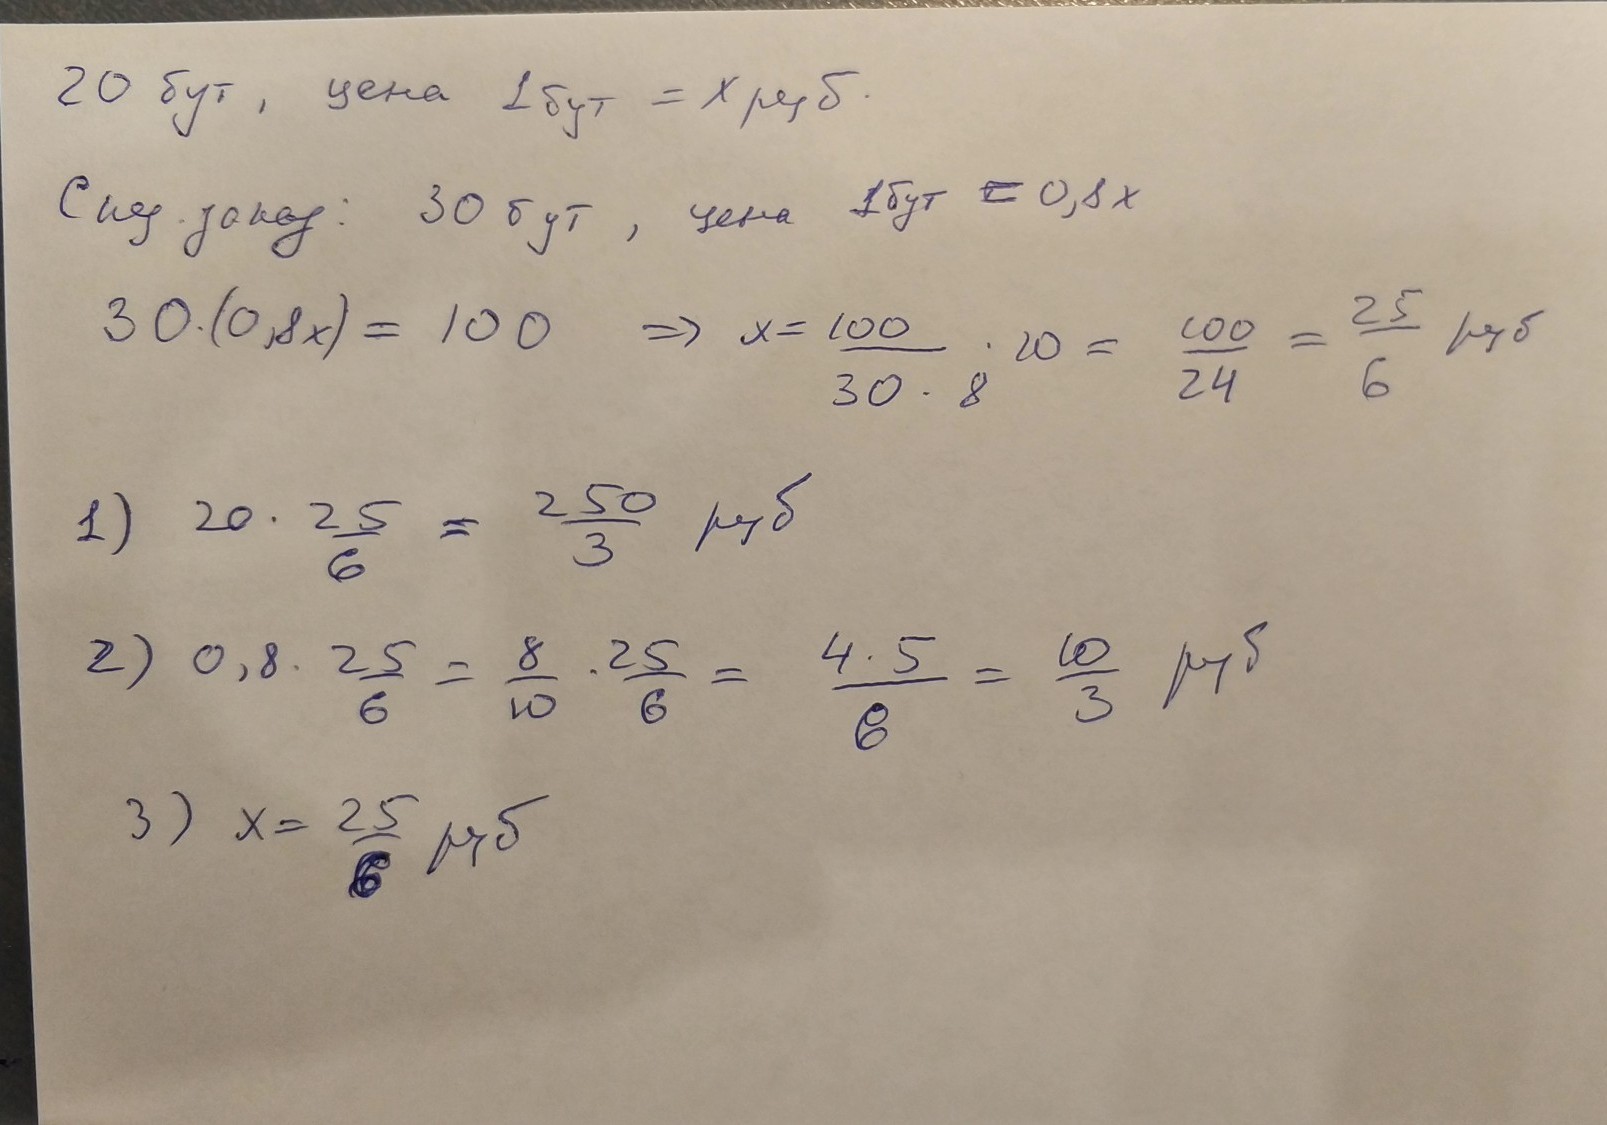 20 бут, цена 1 бут = x руб.
След. заказ: 30 бут, цена 1 бут = 0,8x
30·(0,8x) = 100 => x = 100/(30·8) · 10 = 100/24 = 25/6 руб
1) 20 · 25/6 = 250/3 руб
2) 0,8 · 25/6 = 8/10 · 25/6 = 4·5/6 = 10/3 руб
3) x = 25/6 руб